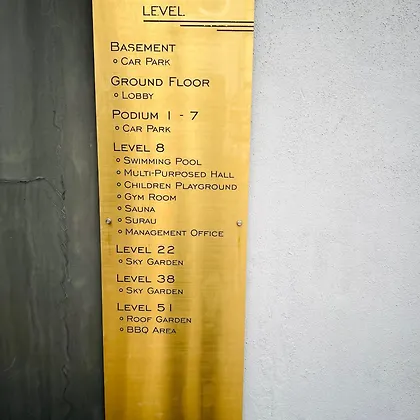 LEVEL
BASEMENT
° CAR PARK
GROUND FLOOR
° LOBBY
PODIUM 1 - 7
° CAR PARK
LEVEL 8
° SWIMMING POOL
° MULTI-PURPOSED HALL
° CHILDREN PLAYGROUND
° GYM ROOM
° SAUNA
° SURAU
° MANAGEMENT OFFICE
LEVEL 22
° SKY GARDEN
LEVEL 38
° SKY GARDEN
LEVEL 51
° ROOF GARDEN
° BBQ AREA